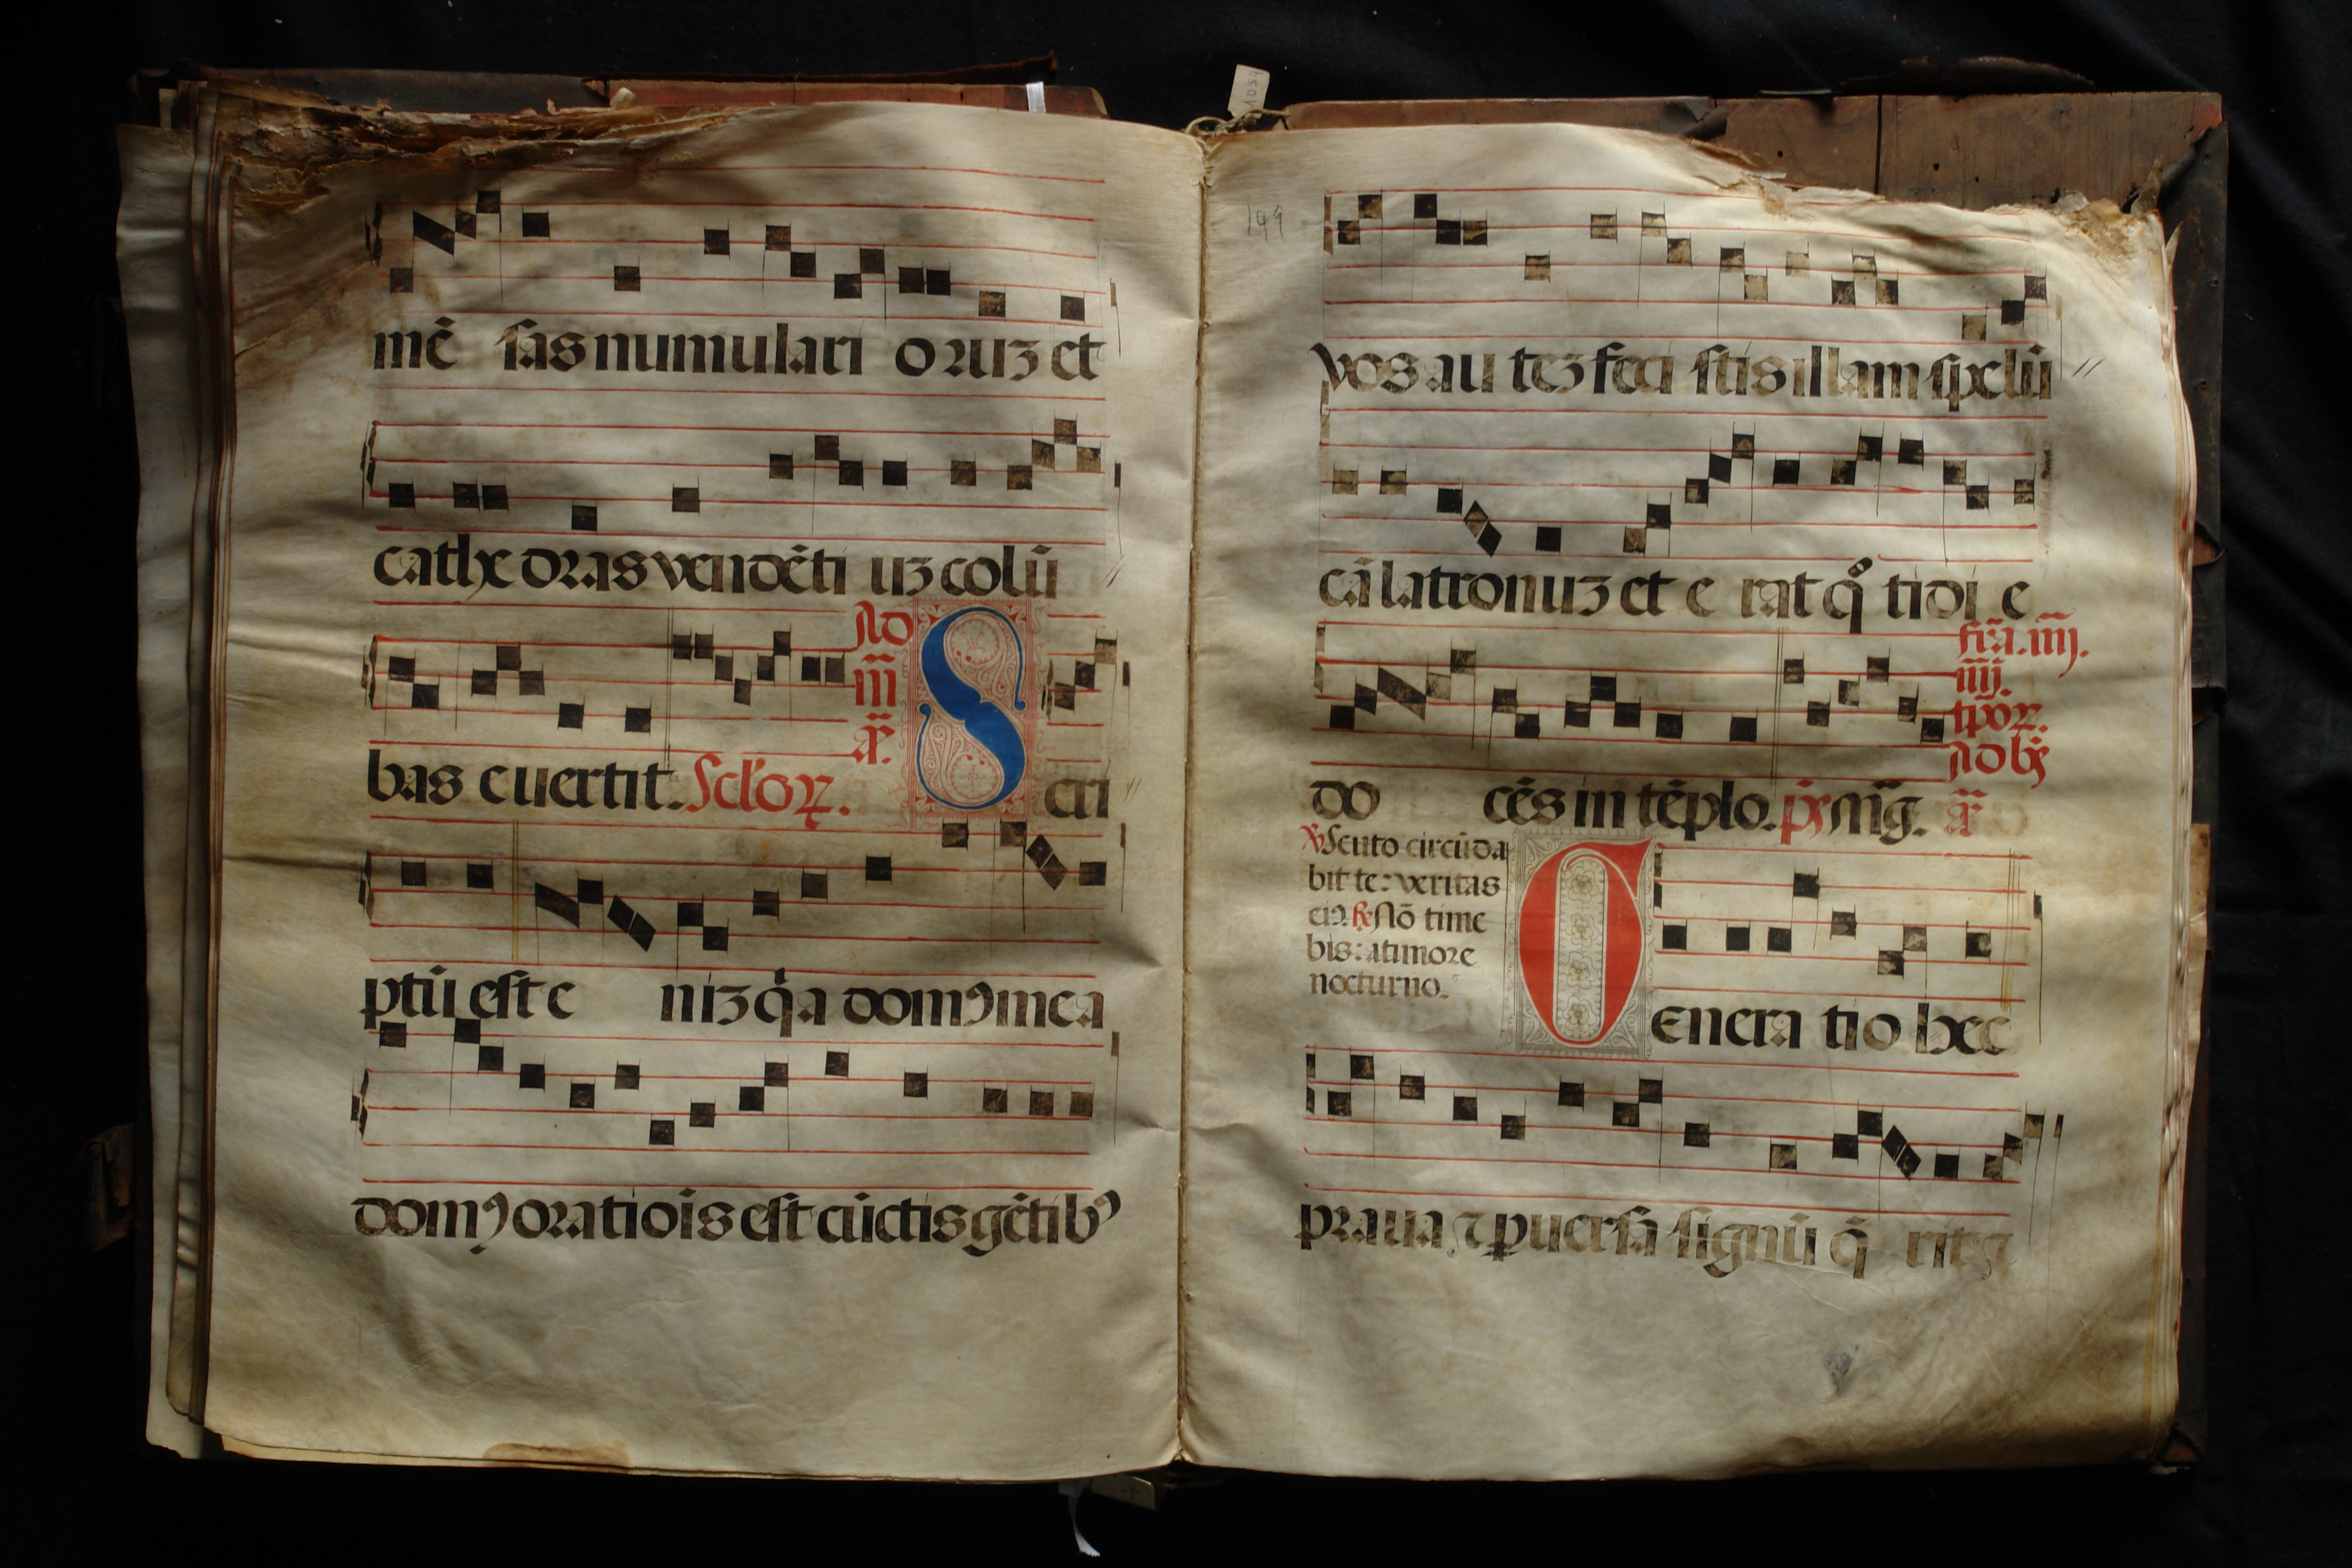 mē sas numulari oruꝫ et
cathedras vendēti uꝫ colū
bas euertit. Sclorꝝ. Ad iii aͫ. S cri
ptū est e niꝫ qa domꝰ mea
domꝰ oratiois est cūctis gētibꝰ
199
vos au teꝫ feci stis illam spelū
cā latronuꝫ et e rat qͦ ti di e
do cēs in tēplo. pͥs Mīg. fr̄a. iiij. iiij. tp̄oꝝ. Ad bñs
℣ Scuto circūda
bit te: veritas
eiꝰ. ℟ Nō time
bis: a timore
nocturno.
G enera tio hec
praua ⁊ ꝑuersa signū q̄ rit ⁊